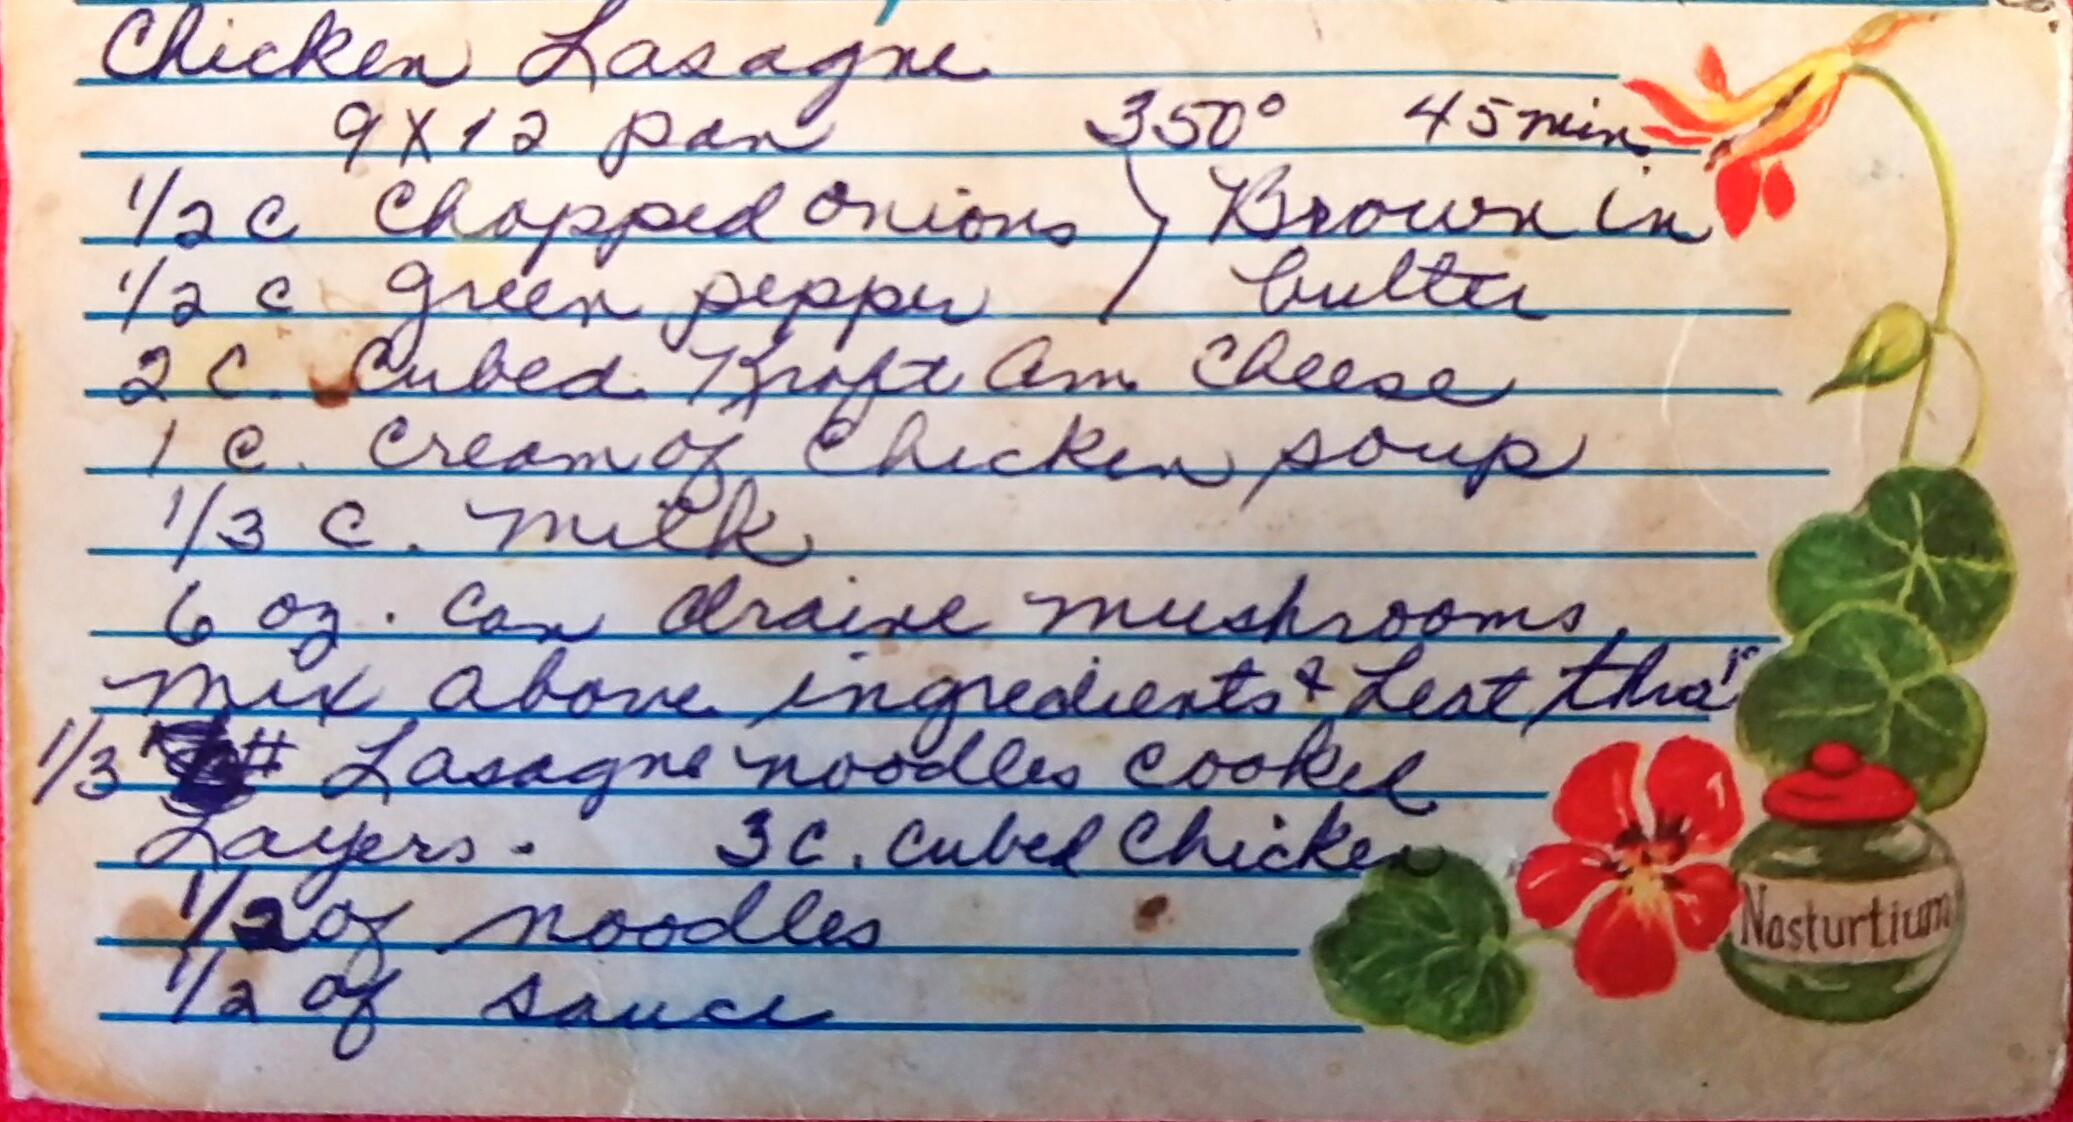 Chicken Lasagne
9 X 12 pan 350° 45 min.
1/2 c Chopped onions ) Brown in
1/2 c green pepper butter
2 c. Cubed Kraft Am. Cheese
1 c. Cream of Chicken soup
1/3 c. milk
6 oz. can draine mushrooms
Mix above ingredients & heat thru
1/3 # Lasagne noodles cooked
Layers. 3 c. cubed Chicken
1/2 of noodles
1/2 of sauce
Nasturtium